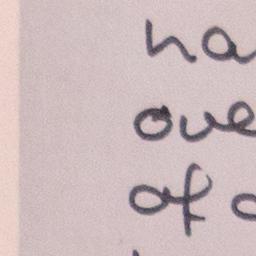 ha
ove
of